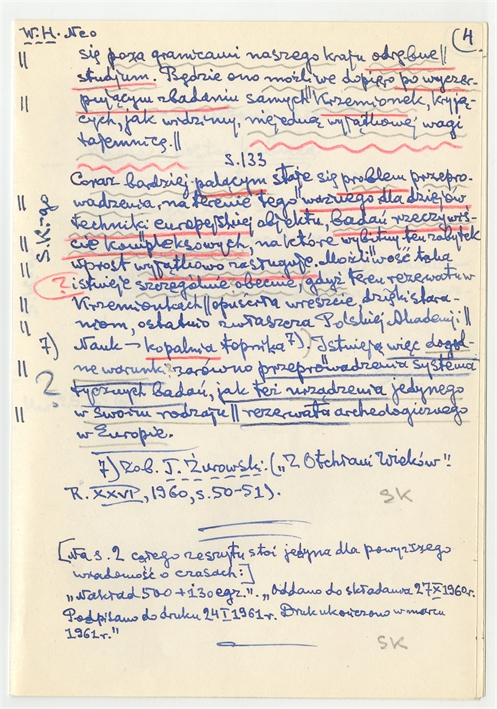 W.H. Neo
4
się poza granicami naszego kraju odrębne ||
studjum. Będzie ono możliwe dopiero po wyczer-
pującym zbadaniu samych || Krzemionek, kryją-
cych, jak widzimy, niejedną wyjątkowej wagi
tajemnicę. ||
s. 133
Coraz bardziej palącym staje się problem przepro-
wadzenia, na terenie tego ważnego dla dziejów
techniki europejskiej objektu, badań rzeczywiś-
cie kompleksowych, na które wybitny ten zabytek
wprost wyjątkowo zasługuje. Możliwość taka
? istnieje szczególnie obecnie, gdyż teren rezerwatu w
Krzemionkach || opuściła wreszcie dzięki stara-
niom, ostatnio zwłaszcza Polskiej Akademji ||
Nauk – kopalnia topnika 7). Istnieją więc dogod-
ne warunki zarówno przeprowadzenia systema
tycznych badań, jak też urządzenia jedynego
w swoim rodzaju || rezerwatu archeologicznego
w Europie.
S.K-go
7)
?
7) Zob. J. Żurowski: („Z Otchłani Wieków”
R. XXVI, 1960, s. 50-51).
SK
[Na s. 2 całego zeszytu stoi jedyna dla powyższego
wiadomość o czasach:]
„Nakład 500 + 130 egz.”. „Oddano do składania 27 X 1960 r.
Podpisano do druku 24 I 1961 r. Druk ukończono w marcu
1961 r.”
SK